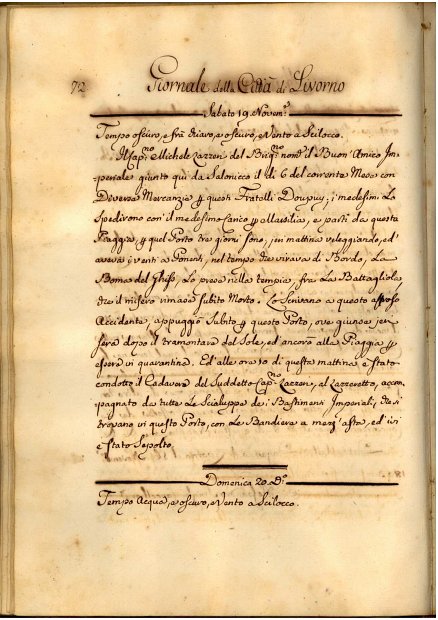 72 Giornale della Città di Livorno
Sabato 19 Novem.e
Tempo oscuro, e frà chiaro, e oscuro, e Vento à Scilocco.
Il Cap.no Michele Lazzeri del Brig.no nom.to il Buon' Amico Im-
periale giunto qui da Salonicco il di 6 del corrente Mese con
Diverse Mercanzie p questi Fratelli Doupuy; i medesimi Lo
Spedirono con il medesimo Carico p Marsilia, e partì da questa
Piaggia, p quel Porto tre giorni sono, jeri mattina veleggiando, ed
aveva i venti a Ponent, nel tempo che virava di Bordo, La
Boma del Ghiss, Lo prese nella tempia, frà La Battagliola
che il misero rimase subito Morto. Lo Scrivano a questo
Accidente, appuggiò Subito p questo Porto, ove giunse jeri
sera dopo il tramontare del Sole, ed ancora alla Piaggia p
essere in quarantina. Ed alle ore 10 di questa mattina è stato
condotto il Cadavere del Suddetto Cap.no Lazzeri, al Lazzeretto, accom
pagnato da tutte Le Scialuppe de i Bastimenti Imperiali, che si
trovano in questo Porto, con Le Bandiere a mezz' asta, ed ivi
è stato Sepolto.
Domenica 20. d.o
Tempo Acqua, e oscuro, e Vento a Scilocco.